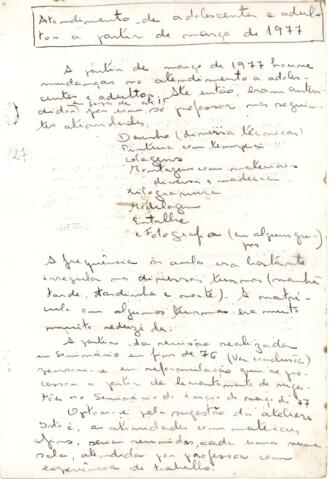 Atendimento de adolescentes e adul-
tos a partir de março de 1977
A partir de março de 1977 houve
mudanças no atendimento a adoles-
centes e adultos. Até então, eram aten-
didos por um só professor nas seguin-
tes atividades:
27
Desenho (diversas técnicas)
Pintura com
colagens
Montagens com materiais
diversos e madeira
Xilogravura
Modelagem
Entalhe
e Fotografia (em alguns gru-
pos
A frequência às aulas era bastante
irregular nos diversos turnos (manhã
tarde, tardinha e noite). A matrí-
cula com algumas turmas era muito
muito reduzida.
A partir da revisão realizada
em Seminário em fins de 76 (Ver conclusões)
pensou-se em reformulação que se pro-
cessou a partir de levantamento de suges-
tões no Seminário do início de março de 77
Optou-se pela sugestão dos ateliers
Isto é, as atividades com materiais
afins, seriam reunidas, cada uma numa
sala, atendida por professor com
experiência de trabalho.